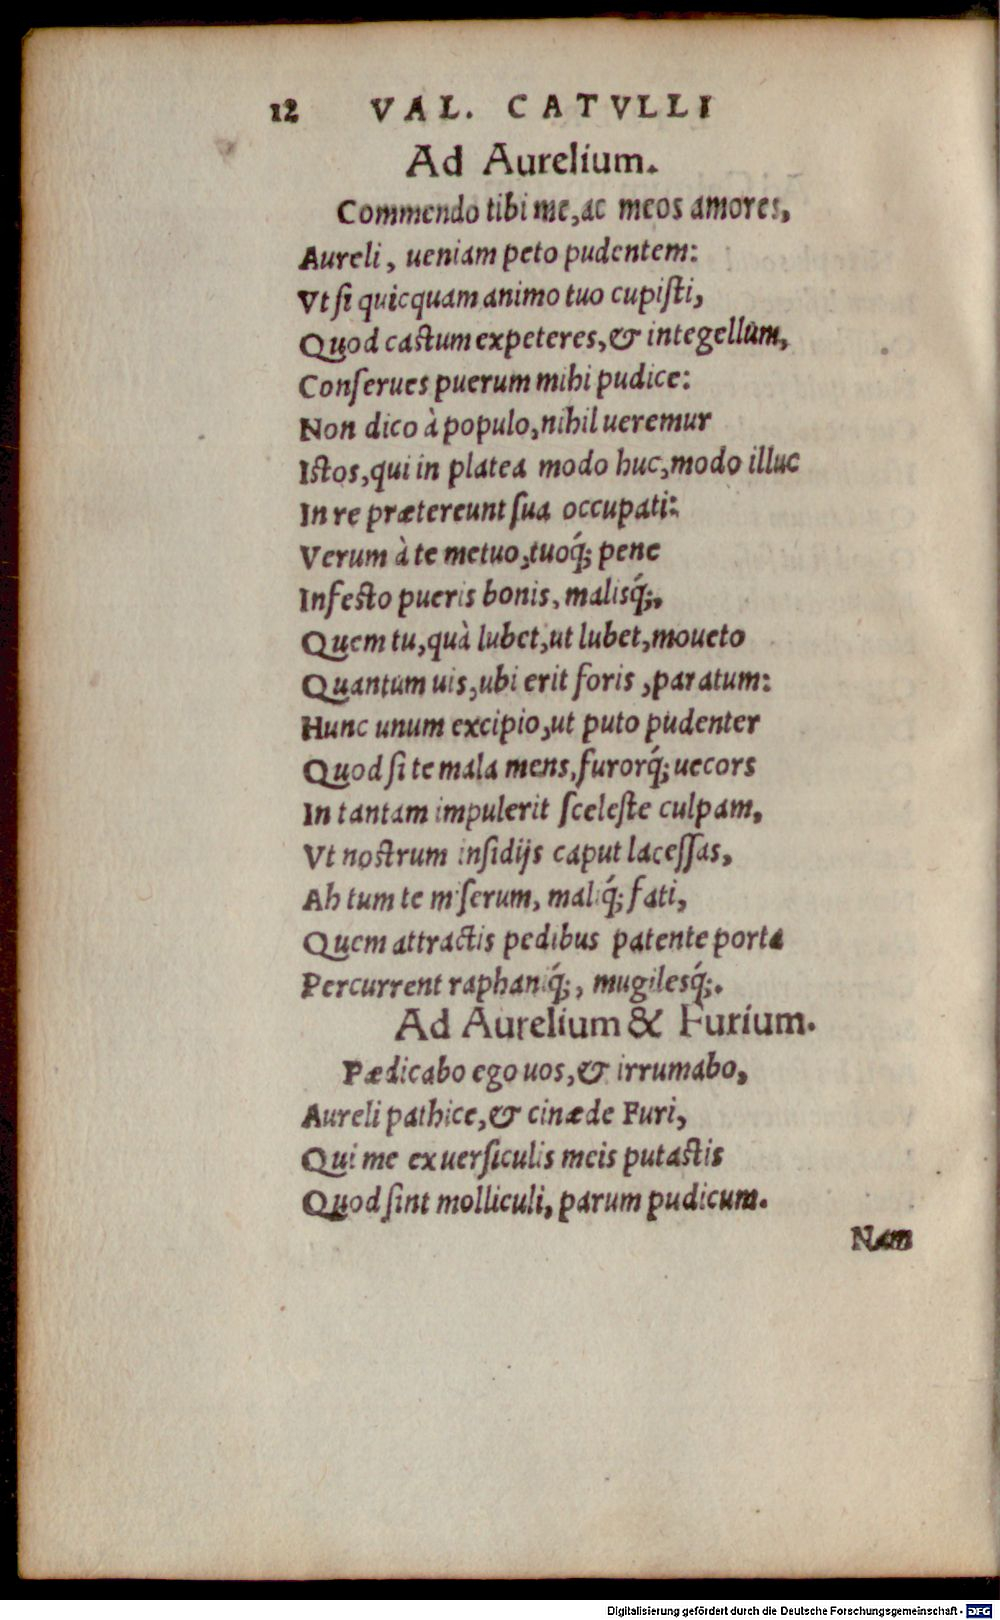 12 VAL. CATVLLI
Ad Aurelium.
Commendo tibi me, ac meos amores,
Aureli, ueniam peto pudentem:
Vt ſi quicquam animo tuo cupiſti,
Quod castum expeteres, & integellum,
Conſerues puerum mihi pudice:
Non dico à populo, nihil ueremur
Istos, qui in platea modo huc, modo illuc
In re prætereunt ſua occupati:
Verum à te metuo, tuoq́; pene
Infesto pueris bonis, malisq́;.
Quem tu, quà lubet, ut lubet, moueto
Quantum uis, ubi erit foris, paratum:
Hunc unum excipio, ut puto pudenter
Quod ſi te mala mens, furorq́; uecors
In tantam impulerit ſceleſte culpam,
Vt nostrum inſidijs caput laceſſas,
Ah tum te miſerum, maliq́; fati,
Quem attractis pedibus patente porta
Percurrent raphaniq́;, mugilesq́;.
Ad Aurelium & Furium.
Pædicabo ego uos, & irrumabo,
Aureli pathice, & cinæde Furi,
Qui me ex uerſiculis meis putastis
Quod ſint molliculi, parum pudicum.
Nam
Digitalisierung gefördert durch die Deutsche Forschungsgemeinschaft - DFG